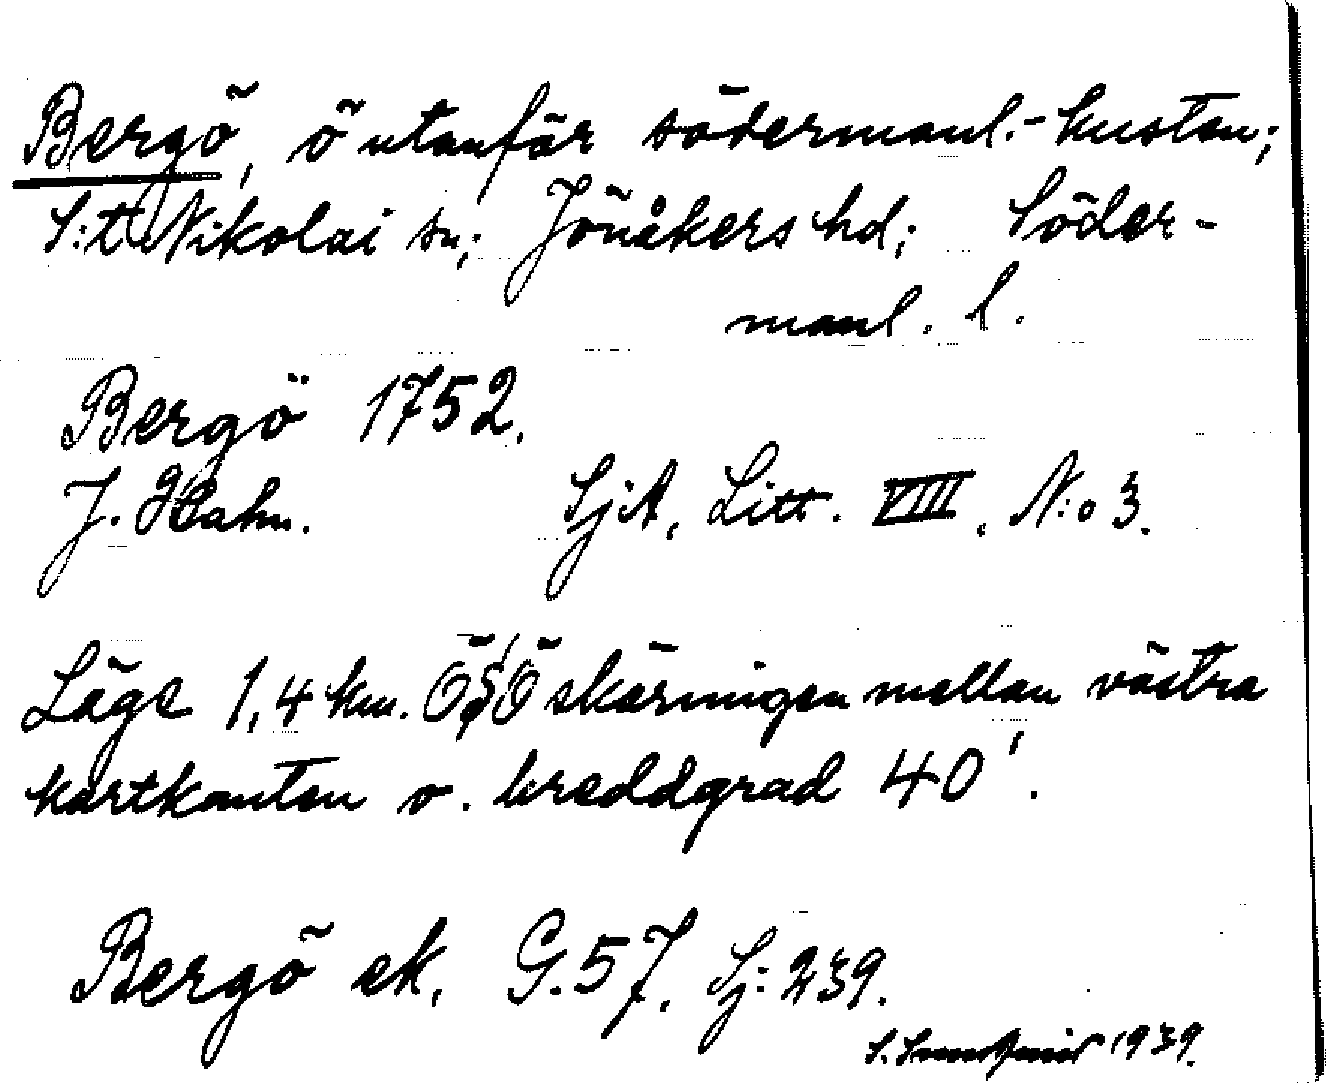 Bergö, ö utanför södermanl.-kusten;
S:t Nikolai sn; Jönåkers hd; Söder-
manl. l.
Bergö 1752.
J. Hahn. SjA, Litt. VIII, N:o 3.
Läge 1,4 km. ÖSÖ skärningen mellan västra
kartkanten o. breddgrad 40'.
Bergö ek. G.57, Sj: 239.
S. 1939.